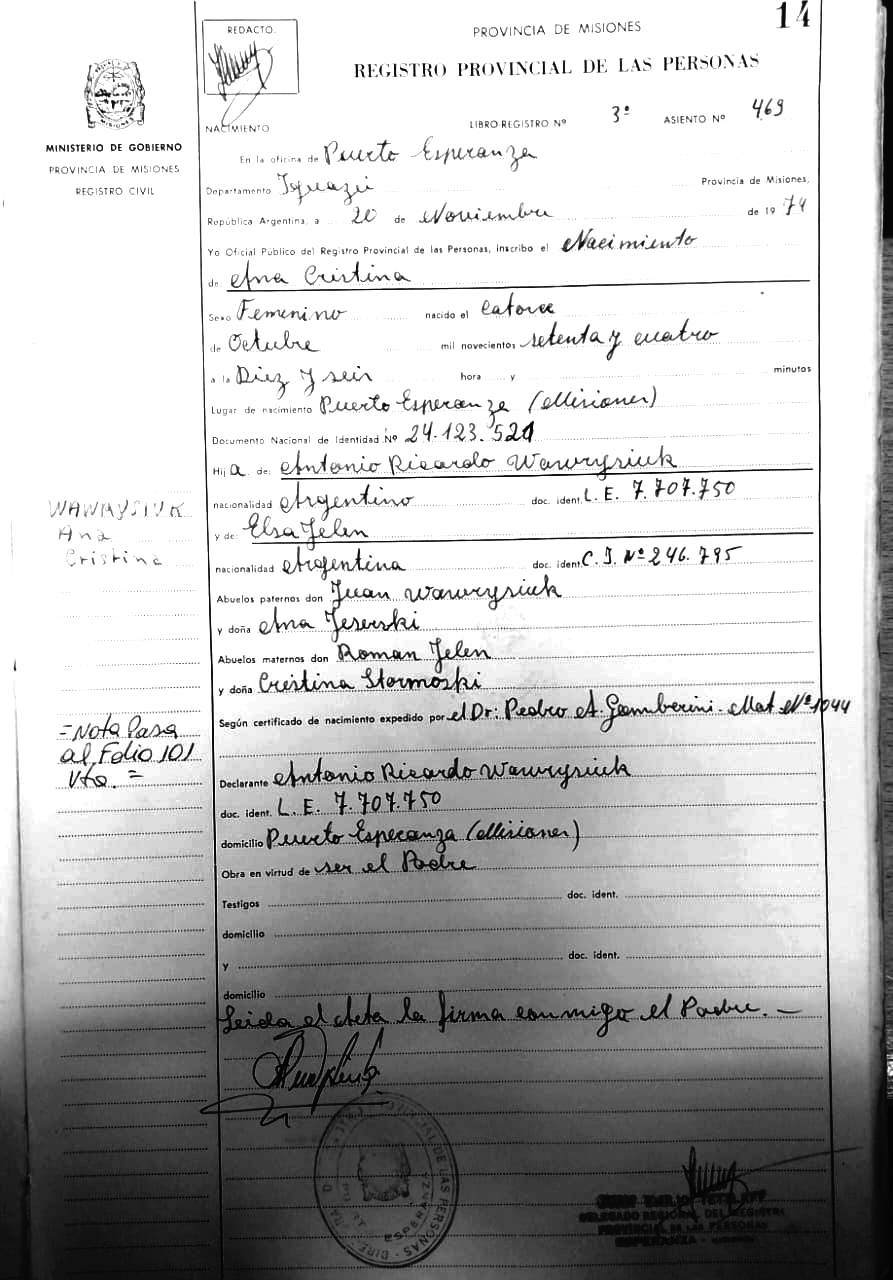 14
REDACTO.
PROVINCIA DE MISIONES
REGISTRO PROVINCIAL DE LAS PERSONAS
MISIONES
MINISTERIO DE GOBIERNO
PROVINCIA DE MISIONES
REGISTRO CIVIL
NACIMIENTO LIBRO-REGISTRO Nº 3º ASIENTO Nº 469
En la oficina de Puerto Esperanza
Departamento Iguazú Provincia de Misiones,
República Argentina, a 20 de Noviembre de 1974
Yo Oficial Público del Registro Provincial de las Personas, inscribo el Nacimiento
de Ana Cristina
Sexo Femenino nacido el Catorce
de Octubre mil novecientos setenta y cuatro
a la Diez y seis hora y minutos
Lugar de nacimiento Puerto Esperanza (Misiones)
Documento Nacional de Identidad Nº 24.123.521
Hija de: Antonio Ricardo Wawrysiuk
nacionalidad Argentino doc. ident. L. E. 7.707.750
y de: Elsa Jelen
nacionalidad Argentina doc. ident. C. I. Nº 246.795
Abuelos paternos don Juan Wawrysiuk
y doña Ana Jeserski
Abuelos maternos don Roman Jelen
y doña Cristina Stormoski
Según certificado de nacimiento expedido por el Dr: Pedro A. Gamberini - Mat. Nº 1044
Declarante Antonio Ricardo Wawrysiuk
doc. ident. L. E. 7.707.750
domicilio Puerto Esperanza (Misiones)
Obra en virtud de ser el Padre
Testigos doc. ident.
domicilio
y doc. ident.
domicilio
Leida el Acta la firma conmigo el Padre. -
WAWRYSIUK
Ana
Cristina
=Nota Pasa
al Folio 101
Vto. =
DE LAS PERSONAS
ESPERANZA
DELEGADO REGIONAL DEL REGISTRO
PROVINCIAL DE LAS PERSONAS
ESPERANZA -